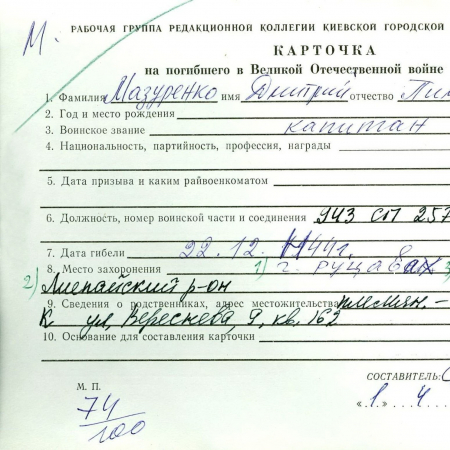 М.
РАБОЧАЯ ГРУППА РЕДАКЦИОННОЙ КОЛЛЕГИИ КИЕВСКОЙ ГОРОДСКОЙ
КАРТОЧКА
на погибшего в Великой Отечественной войне
1. Фамилия Мазуренко имя Дмитрий отчество
2. Год и место рождения
3. Воинское звание капитан
4. Национальность, партийность, профессия, награды
5. Дата призыва и каким райвоенкоматом
6. Должность, номер воинской части и соединения 943 сп 257
7. Дата гибели 22.12. 1944г.
8. Место захоронения 1) г. 3)
2) Лиепайский р-он
9. Сведения о родственниках, адрес местожительства племян.-
К ул. Вереснева, 9, кв. 162
10. Основание для составления карточки
СОСТАВИТЕЛЬ:
М. П.
"1" 4
74/100